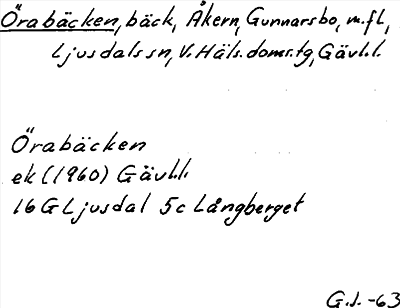 Örabäcken, bäck, Åkern, Gunnarsbo, m.fl.,
Ljusdals sn, V. Häls. doms.tg, Gävl.l.
Örabäcken
ek (1960) Gävl.l.
16 G Ljusdal 5c Långberget
G.J. -63